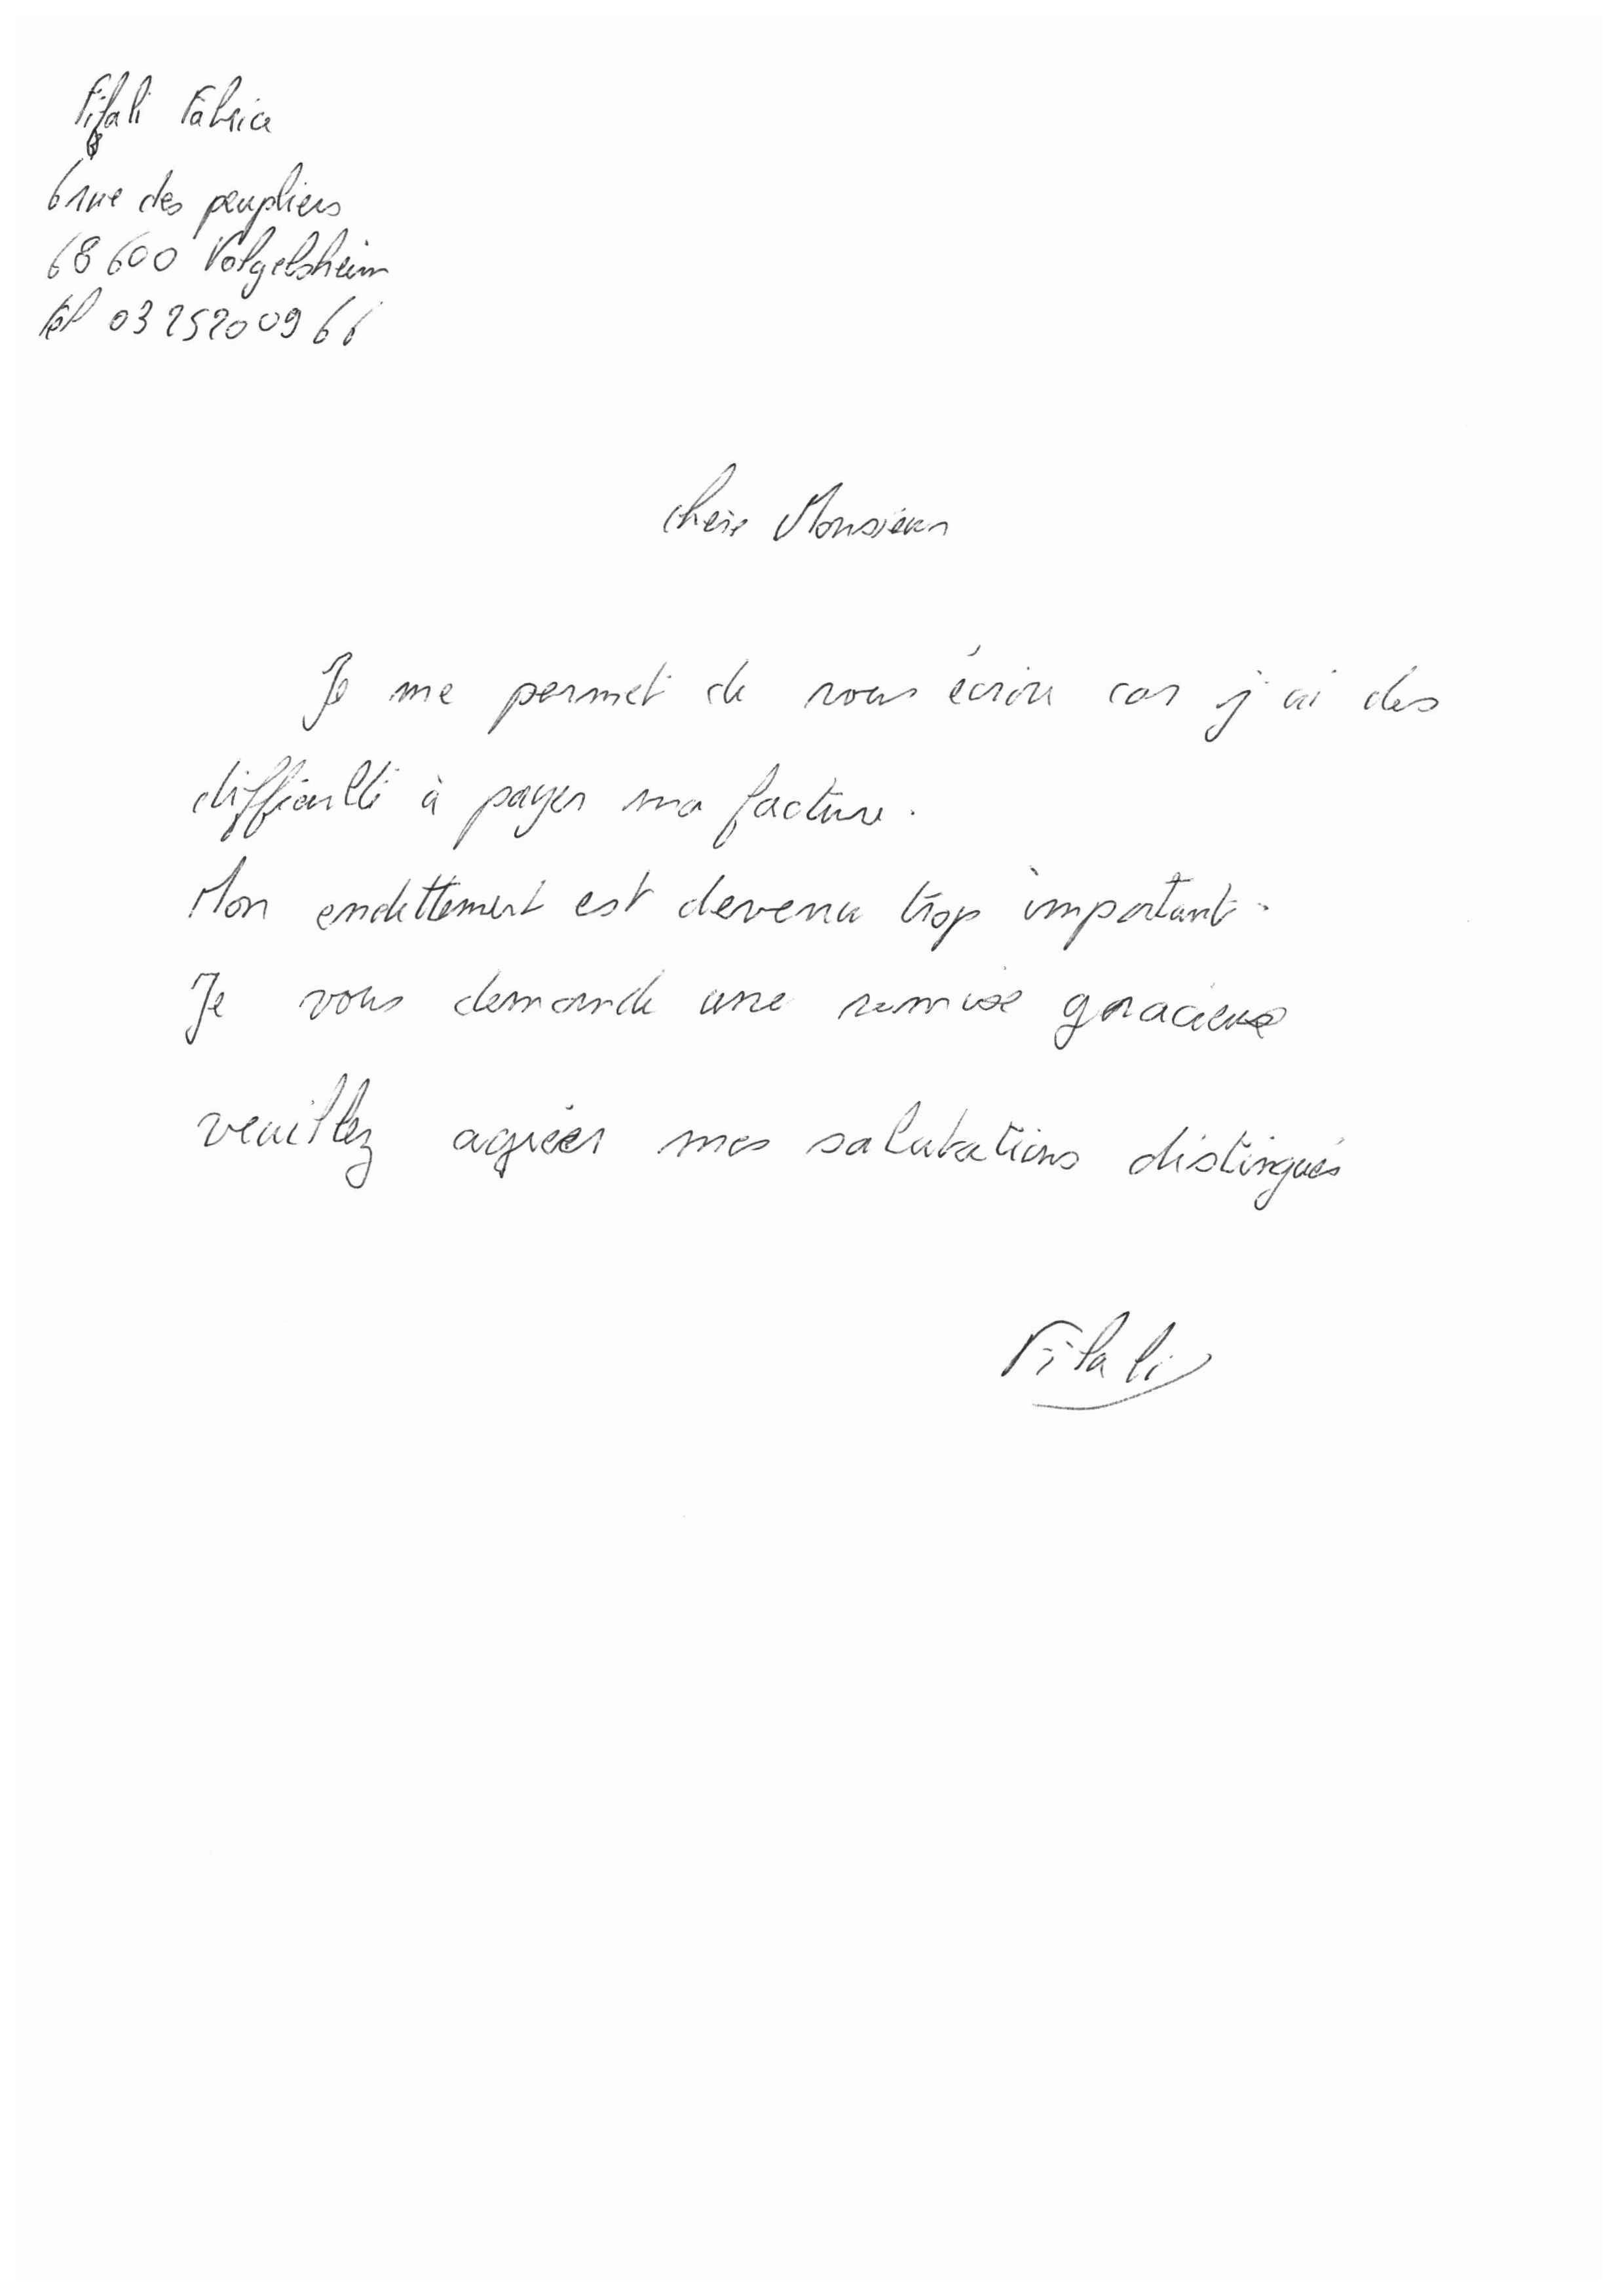 Filali Fabrice
6 rue des peupliers
68600 Volgelsheim
tel 03 25 20 09 66
chère Monsieur
Je me permet de vous écrire car j'ai des
difficulté à payer ma facture.
Mon endettement est devenu trop important.
Je vous demande une remise gracieuse
veuillez agréer mes salutations distingués
Filali